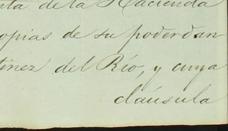 nta de la Hacienda
opias de su poderdan
tinez del Río, y cuya
cláusula